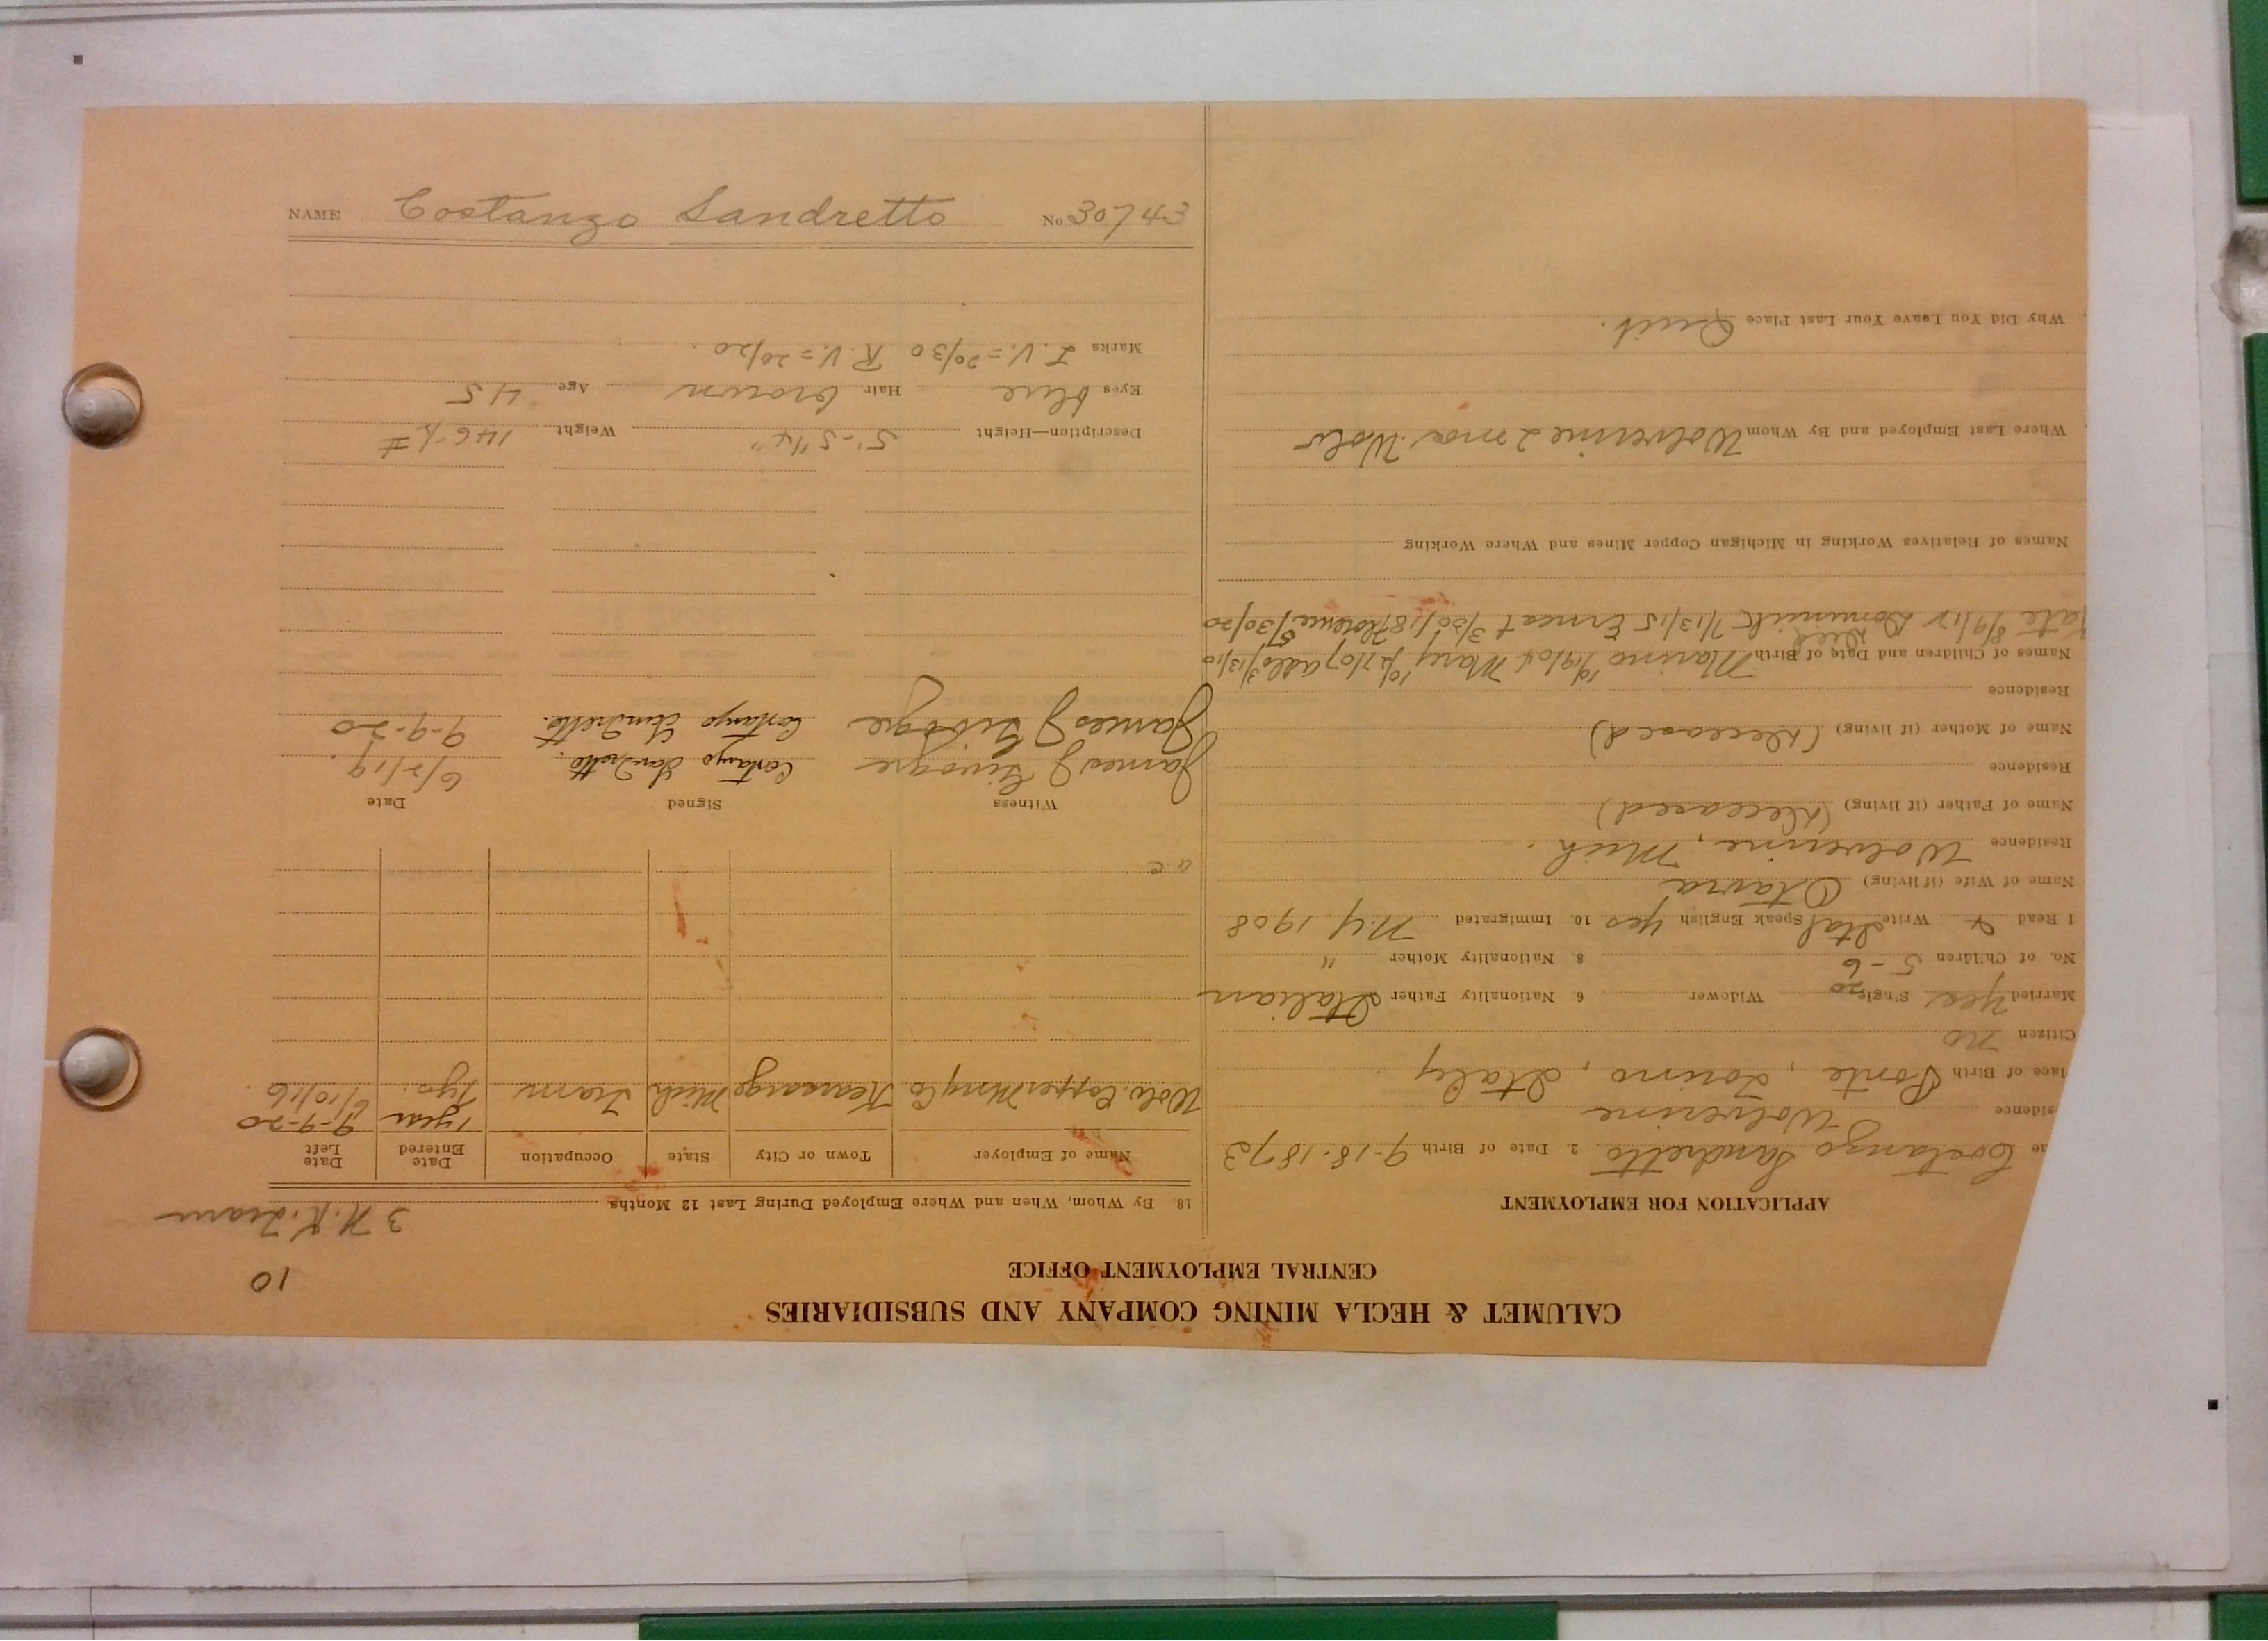 CALUMET & HECLA MINING COMPANY AND SUBSIDIARIES
CENTRAL EMPLOYMENT OFFICE
10
APPLICATION FOR EMPLOYMENT
ae Costanzo Sandretto 2. Date of Birth 9-18-1873
sidence Wolverine
lace of Birth Ponte, Torino, Italy
Citizen no
Married yes Single Widower 6. Nationality Father Italian
No. of Children 5-6 8. Nationality Mother "
I Read & Write Ital Speak English yes 10. Immigrated N.Y. 1908
Name of Wife (if living)
Residence Wolverine, Mich.
Name of Father (if living) (Deceased)
Residence
Name of Mother (if living) (Deceased)
Residence
Names of Children and Date of Birth Marino 10/19/04 Mary 10/27/07 3/13/10
Kate 8/9/12 Dominik 7/13/15 Ernest 3/30/18 Florence 5/30/20
Names of Relatives Working in Michigan Copper Mines and Where Working
Where Last Employed and By Whom Wolverine 2 mos. Wolv
Why Did You Leave Your Last Place Quit.
3 N.K. Tram
18. By Whom, When and Where Employed During Last 12 Months
Name of Employer Town or City State Occupation Date Entered Date Left
1 year 9-9-20
Wolv. Copper Mng Co Kearsarge Mich Tram 7 yrs. 6/10/16
Witness Signed Date
James J Costanzo Sandretto. 6/2/19.
James J Costanzo Sandretto. 9-9-20
Description—Height 5'-5 1/4" Weight 146 1/2 #
Eyes blue Hair brown Age 45
Marks L.V.=20/30 R.V.=20/20.
NAME Costanzo Sandretto No. 30743